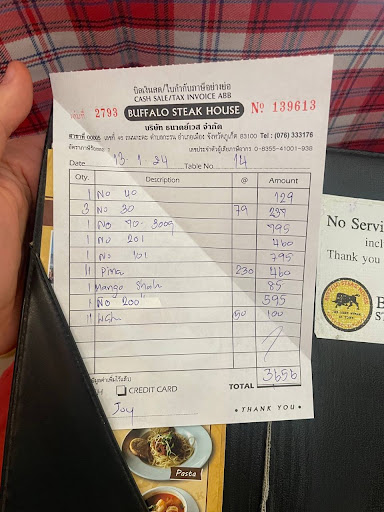 บิลเงินสด/ใบกำกับภาษีอย่างย่อ
CASH SALE/TAX INVOICE ABB
เล่มที่ 2793 BUFFALO STEAK HOUSE Nº 139613
บริษัท ธนาตย์เวส จำกัด
จังหวัดภูเก็ต 83100 Tel : (076) 333176
เลขประจำตัวผู้เสียภาษีอากร 0-8355-41001-938
Date 13-1-24 Table No. 14
Qty. Description @ Amount
1 No 40 129
3 No 30 79 237
1 No 70-300g 795
1 No 201 460
1 No 101 795
11 Pina 230 460
1 Mango Shak 85
1 No 200" 595
50 100
CREDIT CARD TOTAL 3656
Joy • THANK YOU •
No Servi
incl
Thank you
B
ST
Pasta